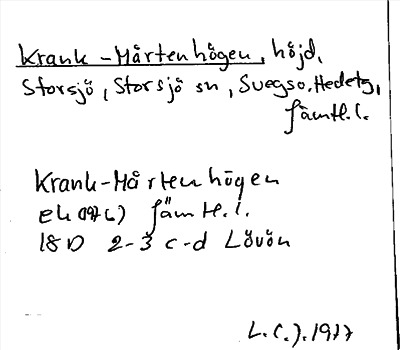 Krank-Mårtenhögen, höjd,
Storsjö, Storsjö sn, Svegs o. Hedetg,
Jämtl. l.
Krank-Mårtenhögen
Ek (1976) Jämtl. l.
18D 2-3 c-d Lövön
L.C.J. 1977